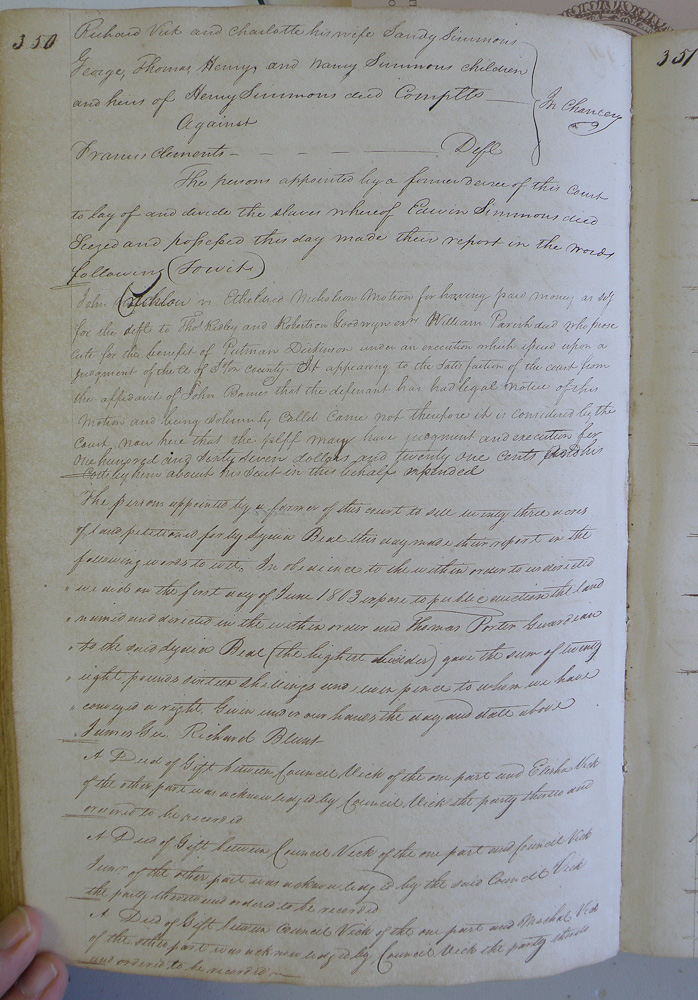 350
Richard Vick and Charlotte his wife Sandy Simmons
George, Thomas, Henry, and Nancy Simmons children
and heirs of Henry Simmons died Complts
In Chancery
Against
Francis Clements Deft
The persons appointed by a former decree of this Court
to lay of and divide the slaves whereof Edwin Simmons died
Seized and possessed this day made their report in the words
following (Towit)
John vs Ethelred Nicholson Motion for having paid money as
for the deft to Thos Ridley and Robertson Goodwyn exrs William Parish died who prose
cute for the benefit of Putman Dickinson under an execution which issued upon a
judgment of the Ct of Ston county. It appearing to the Satisfaction of the court from
the affidavit of John Barnes that the defendant has had legal notice of this
Motion and being Solemnly Calld Came not therefore it is considered by the
Court now here that the plff may have judgment and execution for
One hundred and Sixty Seven dollars and twenty one cents and his
Costs by him about his Suit in this behalf expended
The persons appointed by a former of this court to sell twenty three acres
of land petitioned for by Beal this day made their report in the
following words to wit. In obedience to the within order to us directed
we did on the first day of June 1803 expose to public auction the land
named and directed in the within order and Thomas Porter Guardian
to the said Beal (the highest bidder) gave the sum of twenty
eight pounds sixteen shillings and seven pence to whom we have
conveyed a right. Given under our hands the day and date above
James Gee Richard Blunt
A Deed of Gift between Council Vick of the one part and Elisha Vick
of the other part was acknowledged by Council Vick the party thereto and
ordered to be recorded
A Deed of Gift between Council Vick of the one part and Council Vick
Junr of the other part was acknowledged by the said Council Vick
the party thereto and ordered to be recorded
A Deed of Gift between Council Vick of the one part and Vick
of the other part was acknowledged by Council Vick the party thereto
and ordered to be recorded
351